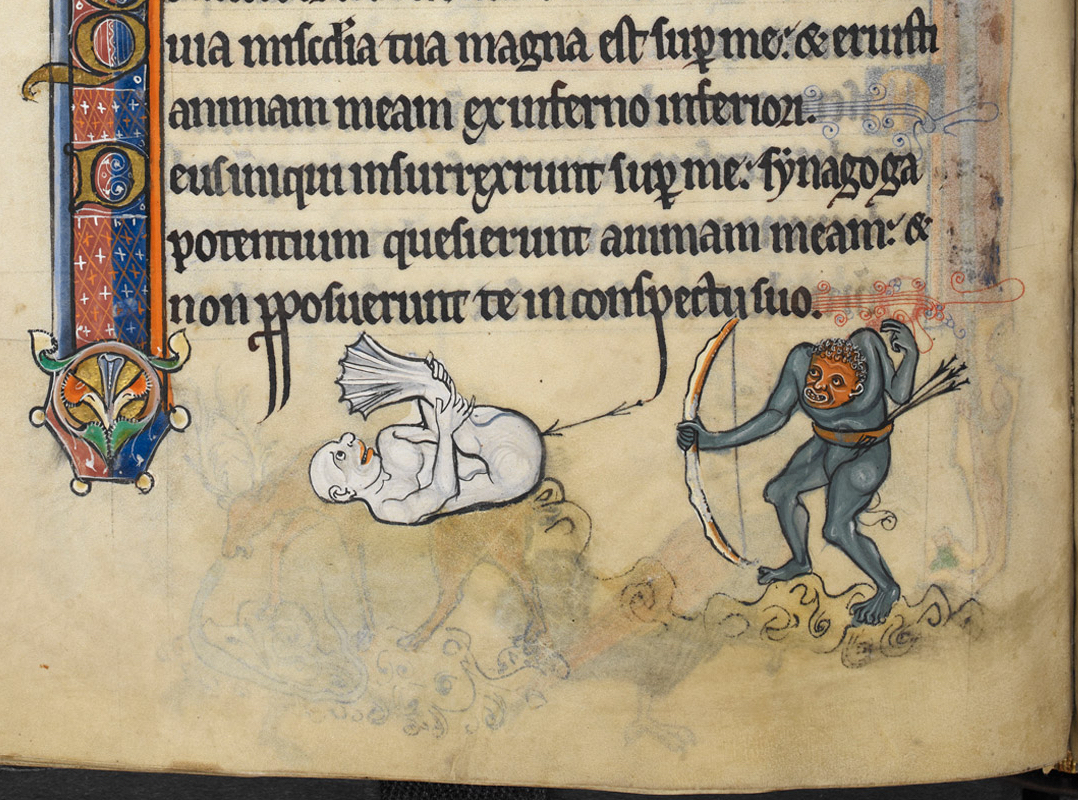 uia miscdia tua magna est sup me: & eruisti
animam meam ex inferno inferiori.
Deus iniqui insurrexerunt sup me: synagoga
potentium quesierunt animam meam: &
non pposuerunt te in conspectu suo.